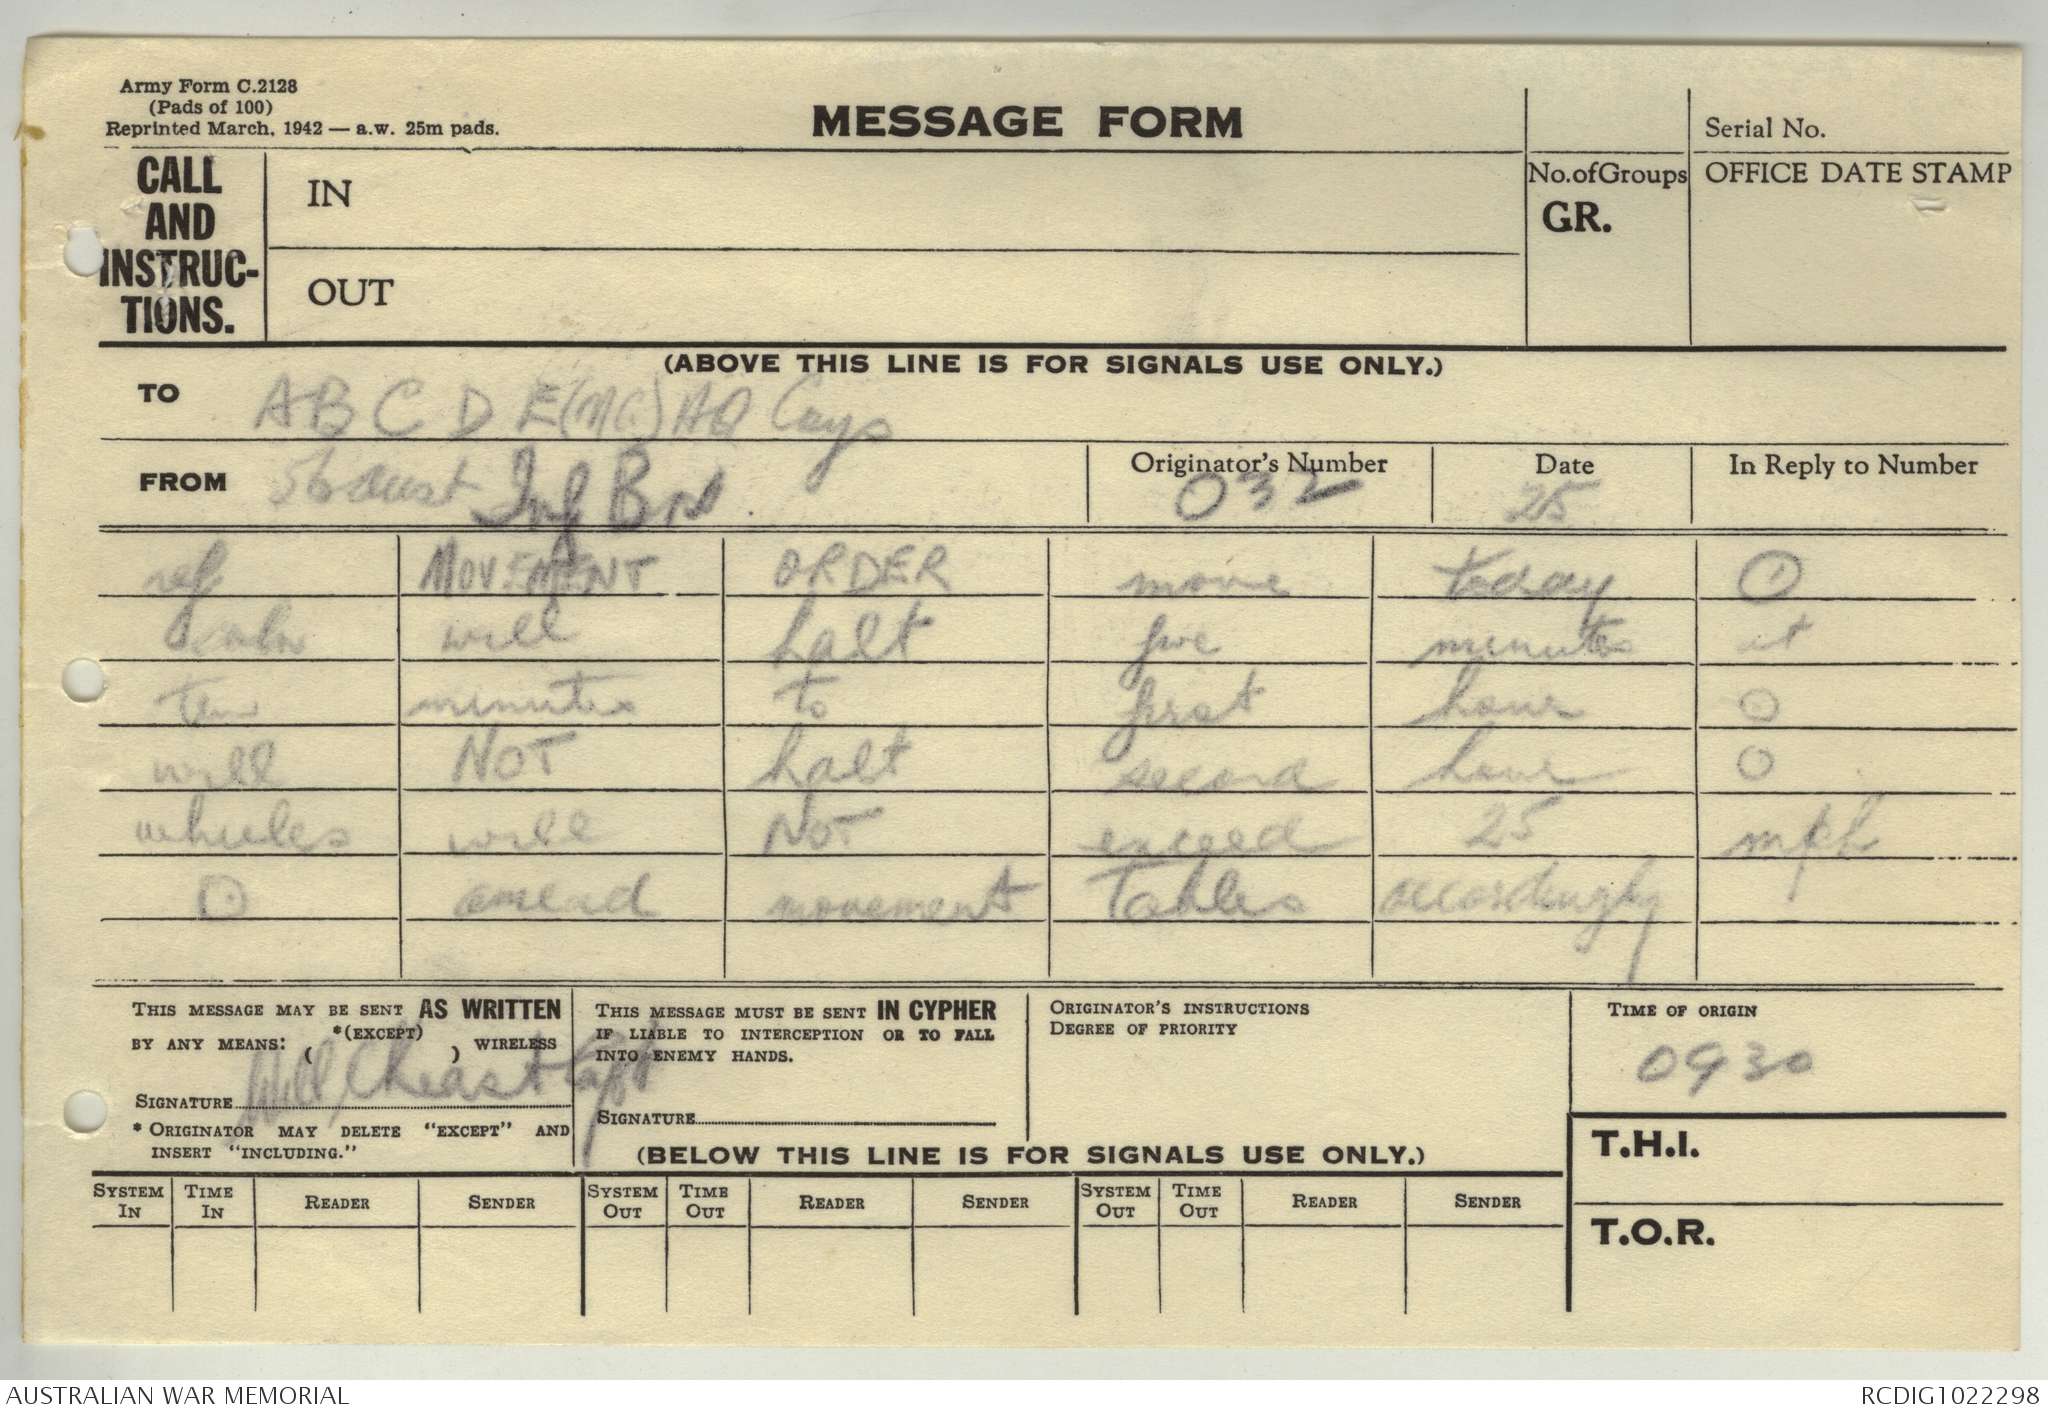 Army Form C.2128
(Pads of 100)
Reprinted March, 1942 — a.w. 25m pads.
MESSAGE FORM
Serial No.
CALL AND INSTRUC-TIONS.
IN
OUT
No.ofGroups
GR.
OFFICE DATE STAMP
(ABOVE THIS LINE IS FOR SIGNALS USE ONLY.)
TO A B C D E (MG) HQ Coys
FROM 56 Aust Inf Bn .
Originator's Number
032
Date
25
In Reply to Number
ref MOVEMENT ORDER move today ⊙
will halt five minutes at
ten minutes to first hour ⊙
will NOT halt second hour ⊙
wheeles will NOT exceed 25 mph
⊙ amend movement Tables accordingly
THIS MESSAGE MAY BE SENT AS WRITTEN
BY ANY MEANS: *(EXCEPT) ( ) WIRELESS
SIGNATURE
Capt
* ORIGINATOR MAY DELETE "EXCEPT" AND
INSERT "INCLUDING."
THIS MESSAGE MUST BE SENT IN CYPHER
IF LIABLE TO INTERCEPTION OR TO FALL
INTO ENEMY HANDS.
SIGNATURE
ORIGINATOR'S INSTRUCTIONS
DEGREE OF PRIORITY
TIME OF ORIGIN
0930
(BELOW THIS LINE IS FOR SIGNALS USE ONLY.)
T.H.I.
T.O.R.
SYSTEM IN TIME IN READER SENDER SYSTEM OUT TIME OUT READER SENDER SYSTEM OUT TIME OUT READER SENDER
AUSTRALIAN WAR MEMORIAL RCDIG1022298